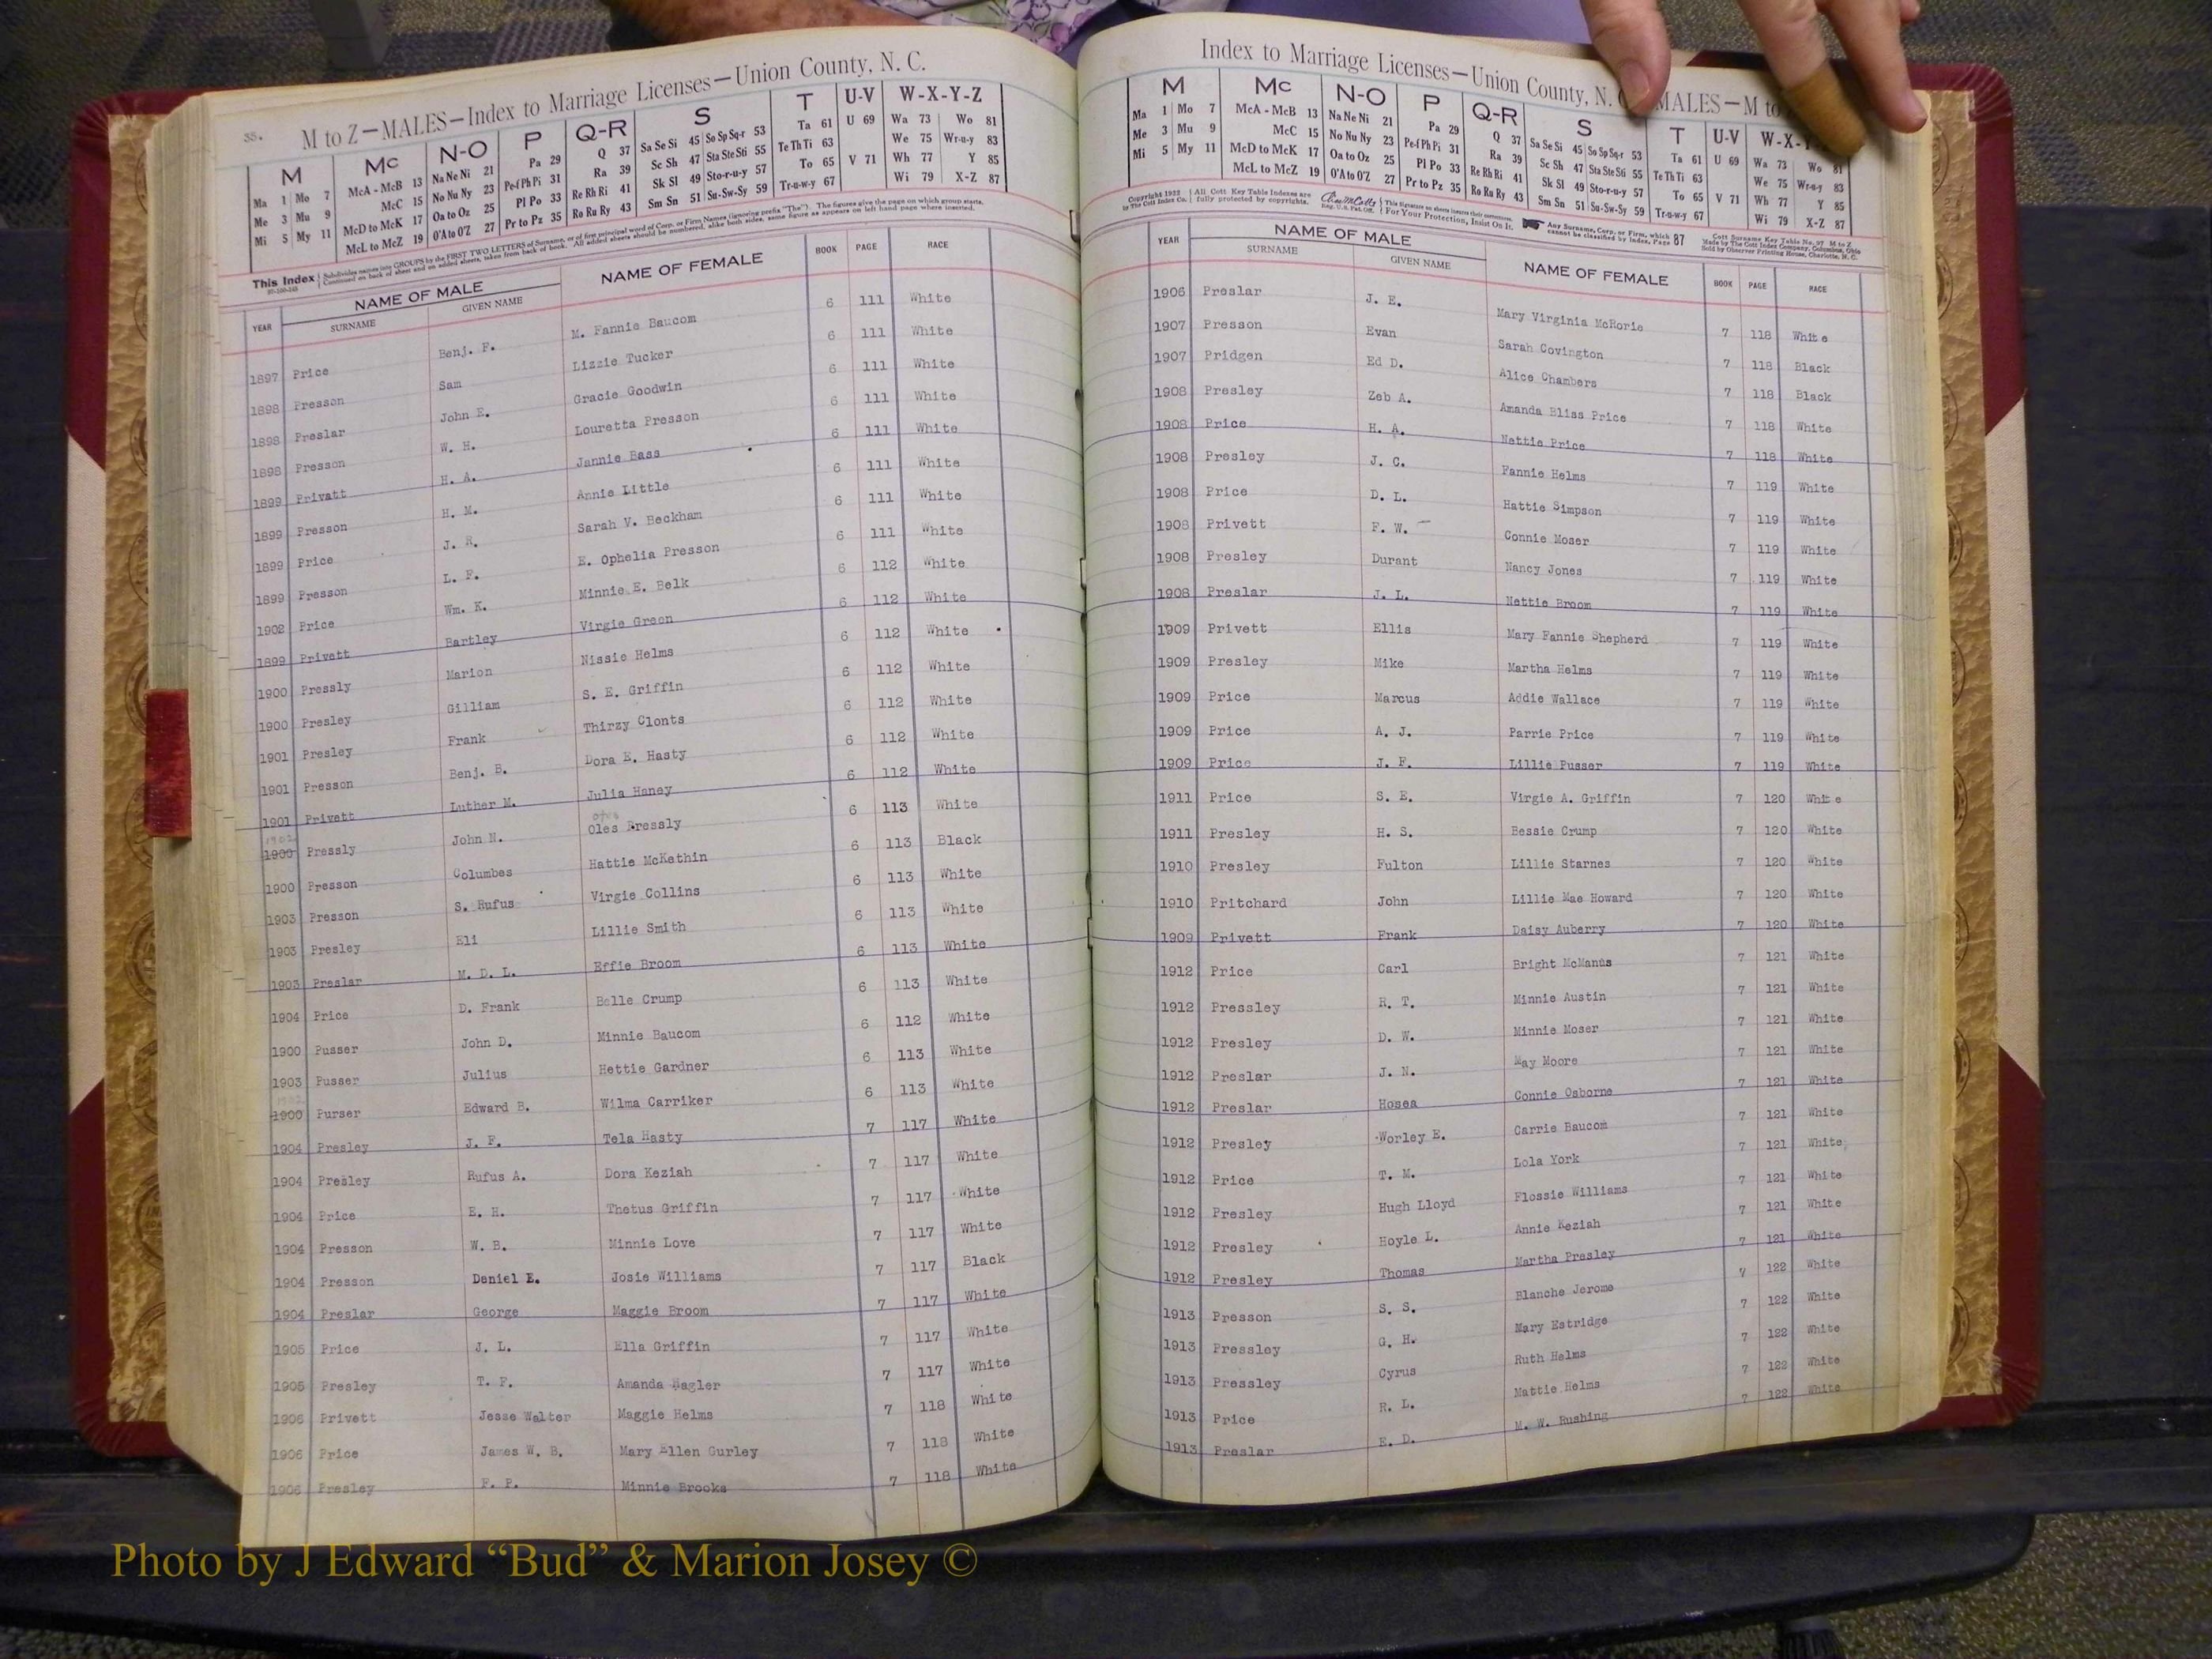 35.
M to Z—MALES—Index to Marriage Licenses—Union County, N. C.
M Mc N-O P Q-R S T U-V W-X-Y-Z
Ma 1 Mo 7 McA - McB 13 Na Ne Ni 21 Pa 29 Q 37 Sa Se Si 45 So Sp Sq-r 53 Ta 61 U 69 Wa 73 Wo 81
Me 3 Mu 9 McC 15 No Nu Ny 23 Pe-f Ph Pi 31 Ra 39 Sc Sh 47 Sta Ste Sti 55 Te Th Ti 63 We 75 Wr-u-y 83
Mi 5 My 11 McD to McK 17 Oa to Oz 25 Pl Po 33 Re Rh Ri 41 Sk Sl 49 Sto-r-u-y 57 To 65 V 71 Wh 77 Y 85
McL to McZ 19 O'A to O'Z 27 Pr to Pz 35 Ro Ru Ry 43 Sm Sn 51 Su-Sw-Sy 59 Tr-u-w-y 67 Wi 79 X-Z 87
This Index Subdivides names into GROUPS by the FIRST TWO LETTERS of Surname, or of first principal word of Corp. or Firm Names (ignoring prefix "The"). The figures give the page on which group starts.
Continued on back of sheet and on added sheets, taken from back of book. All added sheets should be numbered, alike both sides, same figure as appears on left hand page where inserted.
YEAR NAME OF MALE NAME OF FEMALE BOOK PAGE RACE
SURNAME GIVEN NAME
1897 Price Benj. F. M. Fannie Baucom 6 111 White
1898 Presson Sam Lizzie Tucker 6 111 White
1898 Preslar John E. Gracie Goodwin 6 111 White
1898 Presson W. H. Louretta Presson 6 111 White
1899 Privatt H. A. Jannie Bass 6 111 White
1899 Presson H. M. Annie Little 6 111 White
1899 Price J. R. Sarah V. Beckham 6 111 White
1899 Presson L. F. E. Ophelia Presson 6 111 White
1902 Price Wm. K. Minnie E. Belk 6 112 White
1899 Privett Bartley Virgie Green 6 112 White
1900 Pressly Marion Nissie Helms 6 112 White
1900 Presley Gilliam S. E. Griffin 6 112 White
1901 Presley Frank Thirzy Clonts 6 112 White
1901 Presson Benj. B. Dora E. Hasty 6 112 White
1901 Privett Luther M. Julia Haney 6 112 White
1900 Pressly John N. Oles Pressly 6 113 White
1900 Presson Columbes Hattie McKethin 6 113 Black
1903 Presson S. Rufus Virgie Collins 6 113 White
1903 Presley Eli Lillie Smith 6 113 White
1903 Preslar M. D. L. Effie Broom 6 113 White
1904 Price D. Frank Belle Crump 6 113 White
1900 Pusser John D. Minnie Baucom 6 112 White
1903 Pusser Julius Hettie Gardner 6 113 White
1900 Purser Edward B. Wilma Carriker 6 113 White
1904 Presley J. F. Tela Hasty 7 117 White
1904 Presley Rufus A. Dora Keziah 7 117 White
1904 Price E. H. Thetus Griffin 7 117 White
1904 Presson W. B. Minnie Love 7 117 White
1904 Presson Deniel E. Josie Williams 7 117 Black
1904 Preslar George Maggie Broom 7 117 White
1905 Price J. L. Ella Griffin 7 117 White
1905 Presley T. F. Amanda Hagler 7 117 White
1906 Privett Jesse Walter Maggie Helms 7 118 White
1906 Price James W. B. Mary Ellen Gurley 7 118 White
1906 Presley F. P. Minnie Brooks 7 118 White
Index to Marriage Licenses—Union County, N. MALES—M to
M Mc N-O P Q-R S T U-V W-X-Y
Ma 1 Mo 7 McA - McB 13 Na Ne Ni 21 Pa 29 Q 37 Sa Se Si 45 So Sp Sq-r 53 Ta 61 U 69 Wa 73 Wo 81
Me 3 Mu 9 McC 15 No Nu Ny 23 Pe-f Ph Pi 31 Ra 39 Sc Sh 47 Sta Ste Sti 55 Te Th Ti 63 We 75 Wr-u-y 83
Mi 5 My 11 McD to McK 17 Oa to Oz 25 Pl Po 33 Re Rh Ri 41 Sk Sl 49 Sto-r-u-y 57 To 65 V 71 Wh 77 Y 85
McL to McZ 19 O'A to O'Z 27 Pr to Pz 35 Ro Ru Ry 43 Sm Sn 51 Su-Sw-Sy 59 Tr-u-w-y 67 Wi 79 X-Z 87
Copyright 1922 by The Cott Index Co. All Cott Key Table Indexes are fully protected by copyrights. Reg. U.S. Pat. Off. This Signature on sheets insures their correctness. For Your Protection, Insist On It. Any Surname, Corp. or Firm, which cannot be classified by Index, Page 87 Cott Surname Key Table No. 97 M to Z Made by The Cott Index Company, Columbus, Ohio Sold by Observer Printing House, Charlotte, N. C.
YEAR NAME OF MALE NAME OF FEMALE BOOK PAGE RACE
SURNAME GIVEN NAME
1906 Preslar J. E. Mary Virginia McRorie 7 118 White
1907 Presson Evan Sarah Covington 7 118 Black
1907 Pridgen Ed D. Alice Chambers 7 118 Black
1908 Presley Zeb A. Amanda Bliss Price 7 118 White
1908 Price H. A. Nettie Price 7 118 White
1908 Presley J. C. Fannie Helms 7 119 White
1908 Price D. L. Hattie Simpson 7 119 White
1908 Privett F. W. Connie Moser 7 119 White
1908 Presley Durant Nancy Jones 7 119 White
1908 Preslar J. L. Nettie Broom 7 119 White
1909 Privett Ellis Mary Fannie Shepherd 7 119 White
1909 Presley Mike Martha Helms 7 119 White
1909 Price Marcus Addie Wallace 7 119 White
1909 Price A. J. Parrie Price 7 119 White
1909 Price J. F. Lillie Pusser 7 119 White
1911 Price S. E. Virgie A. Griffin 7 120 White
1911 Presley H. S. Bessie Crump 7 120 White
1910 Presley Fulton Lillie Starnes 7 120 White
1910 Pritchard John Lillie Mae Howard 7 120 White
1909 Privett Frank Daisy Auberry 7 120 White
1912 Price Carl Bright McManus 7 121 White
1912 Pressley R. T. Minnie Austin 7 121 White
1912 Presley D. W. Minnie Moser 7 121 White
1912 Preslar J. N. May Moore 7 121 White
1912 Preslar Hosea Connie Osborne 7 121 White
1912 Presley Worley E. Carrie Baucom 7 121 White
1912 Price T. M. Lola York 7 121 White
1912 Presley Hugh Lloyd Flossie Williams 7 121 White
1912 Presley Hoyle L. Annie Keziah 7 121 White
1912 Presley Thomas Martha Presley 7 121 White
1913 Presson S. S. Blanche Jerome 7 122 White
1913 Pressley G. H. Mary Estridge 7 122 White
1913 Pressley Cyrus Ruth Helms 7 122 White
1913 Price R. L. Mattie Helms 7 122 White
1913 Preslar E. D. M. W. Rushing 7 122 White
Photo by J Edward “Bud” & Marion Josey ©